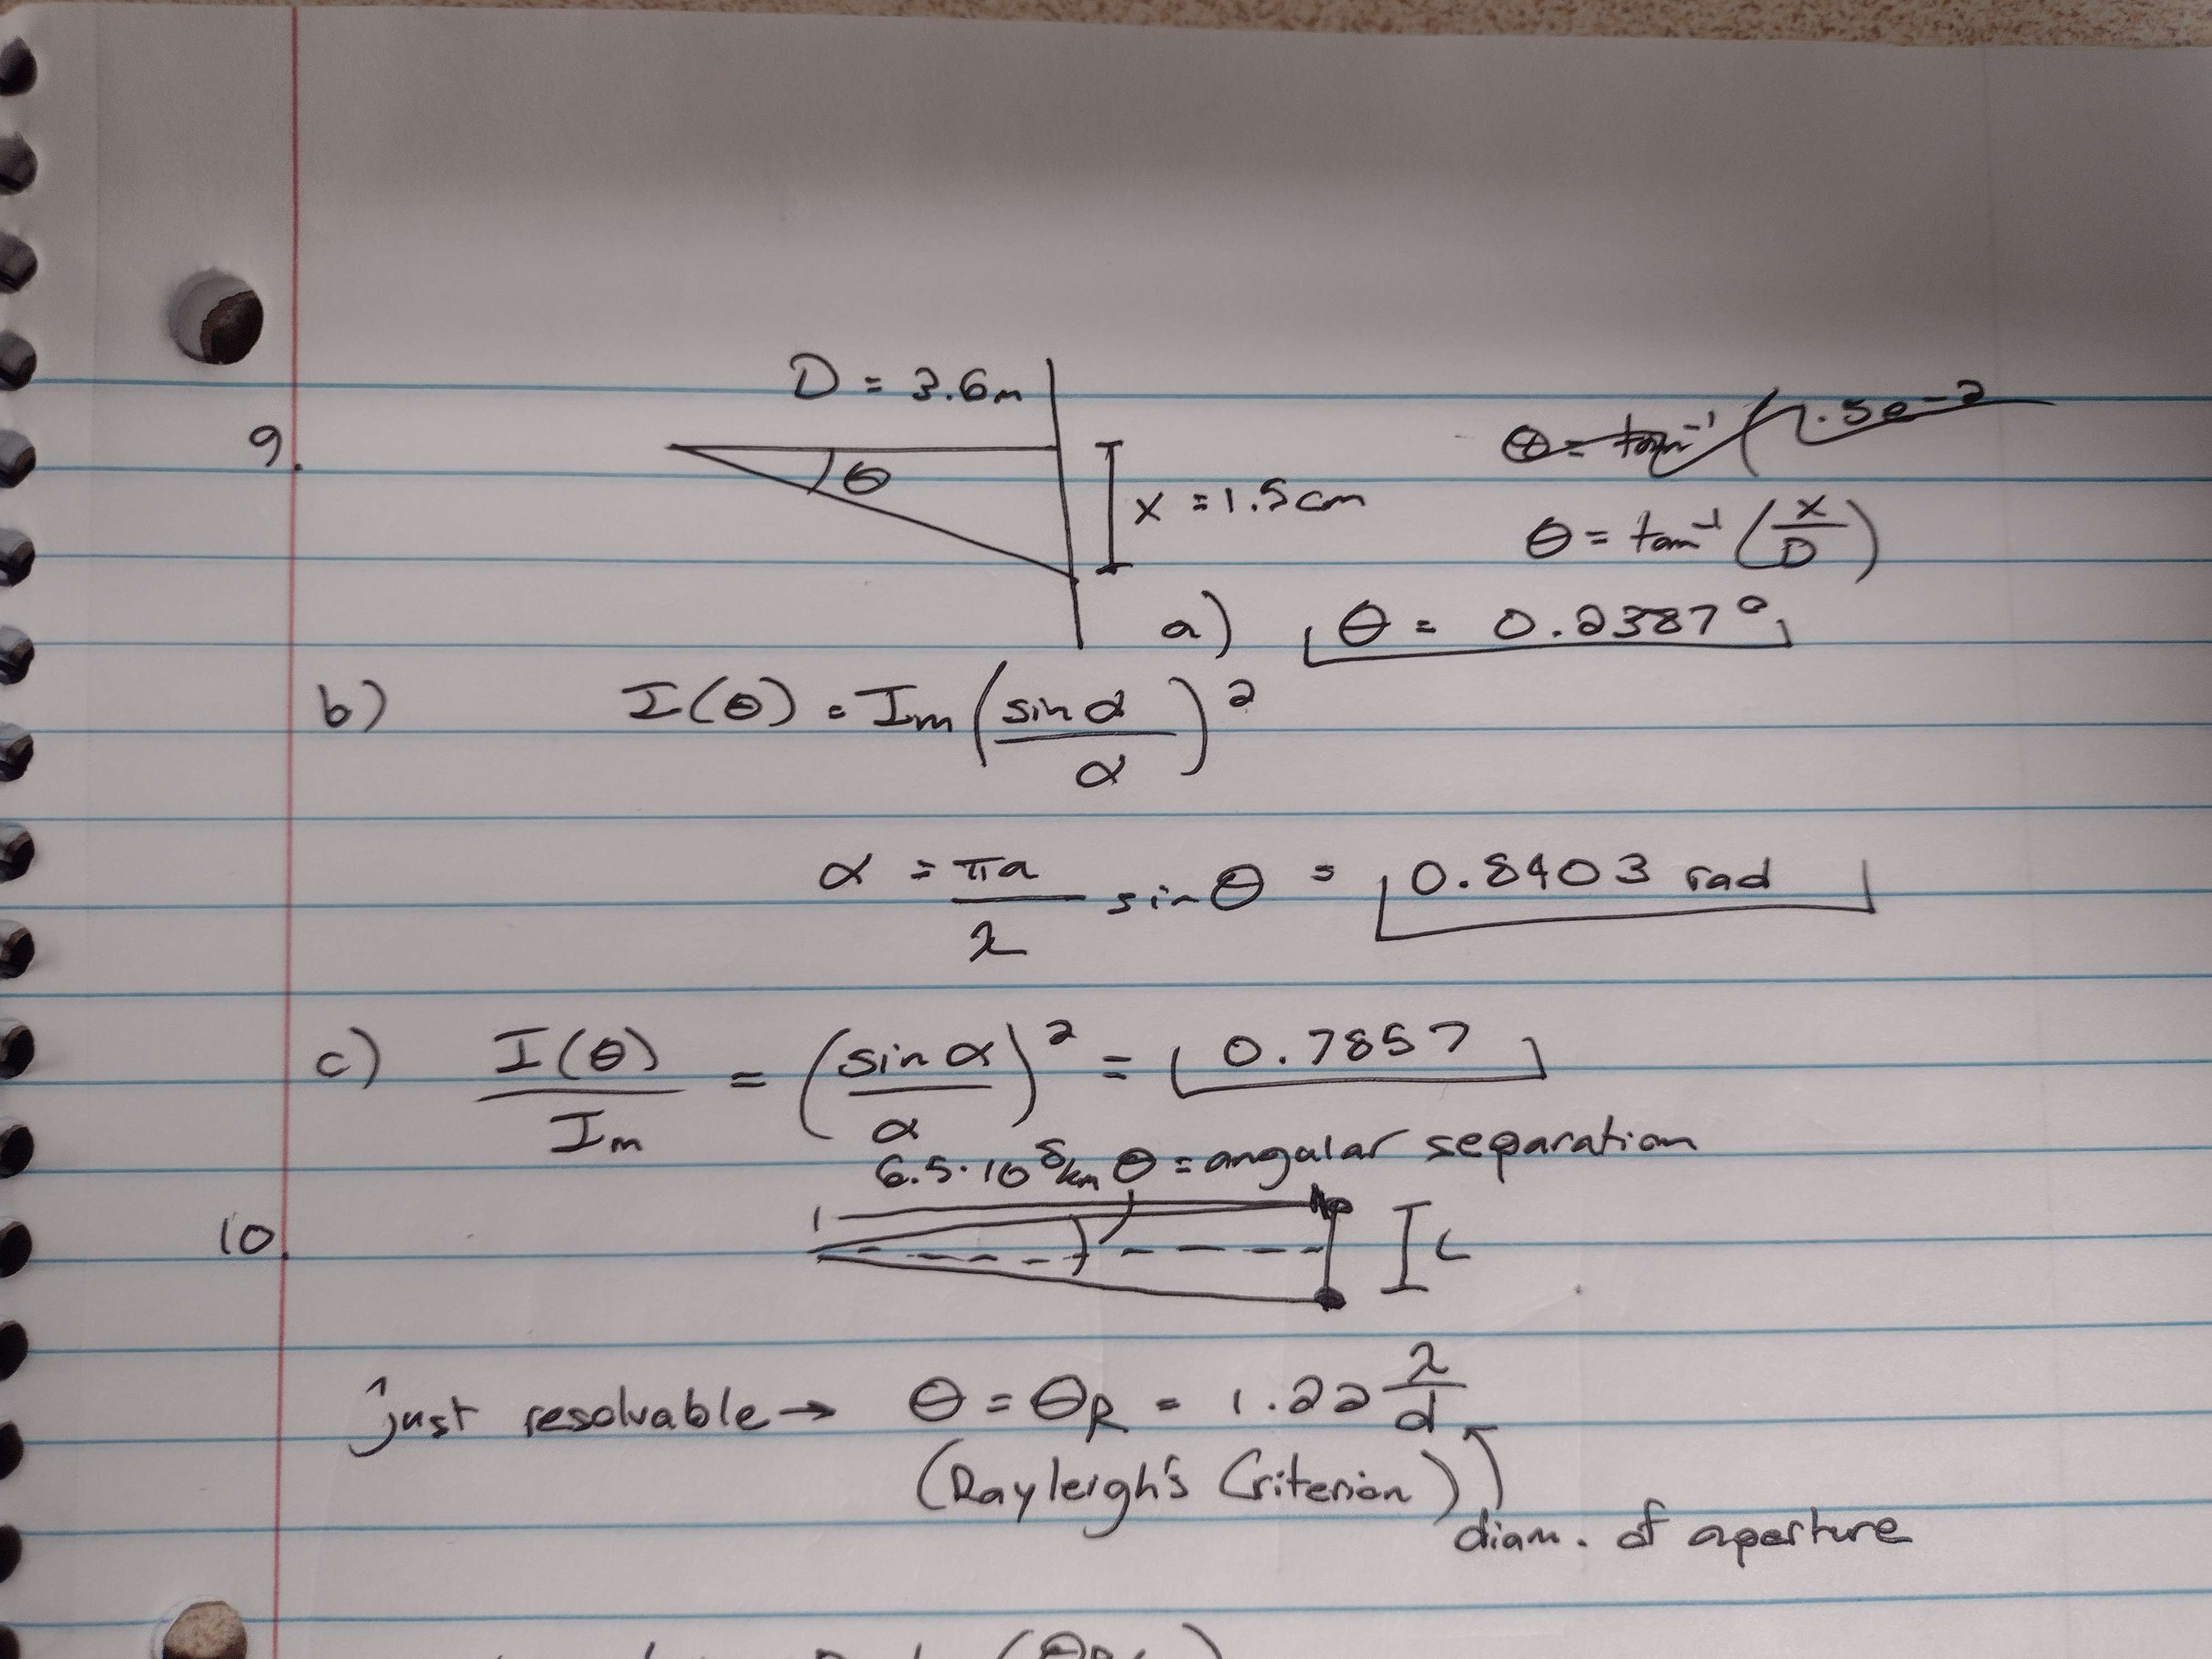 D = 3.6m
9.
θ = tan⁻¹ (1.5e-2
θ
x = 1.5cm
θ = tan⁻¹ (x/D)
a) θ = 0.2387°
b) I(θ) = Im (sin α / α)²
α = πa/λ sin θ = 0.8403 rad
c) I(θ)/Im = (sin α / α)² = 0.7857
6.5·10⁸km θ = angular separation
10.
L
just resolvable → θ = θR = 1.22 λ/d
(Rayleigh's Criterion)
diam. of aperture